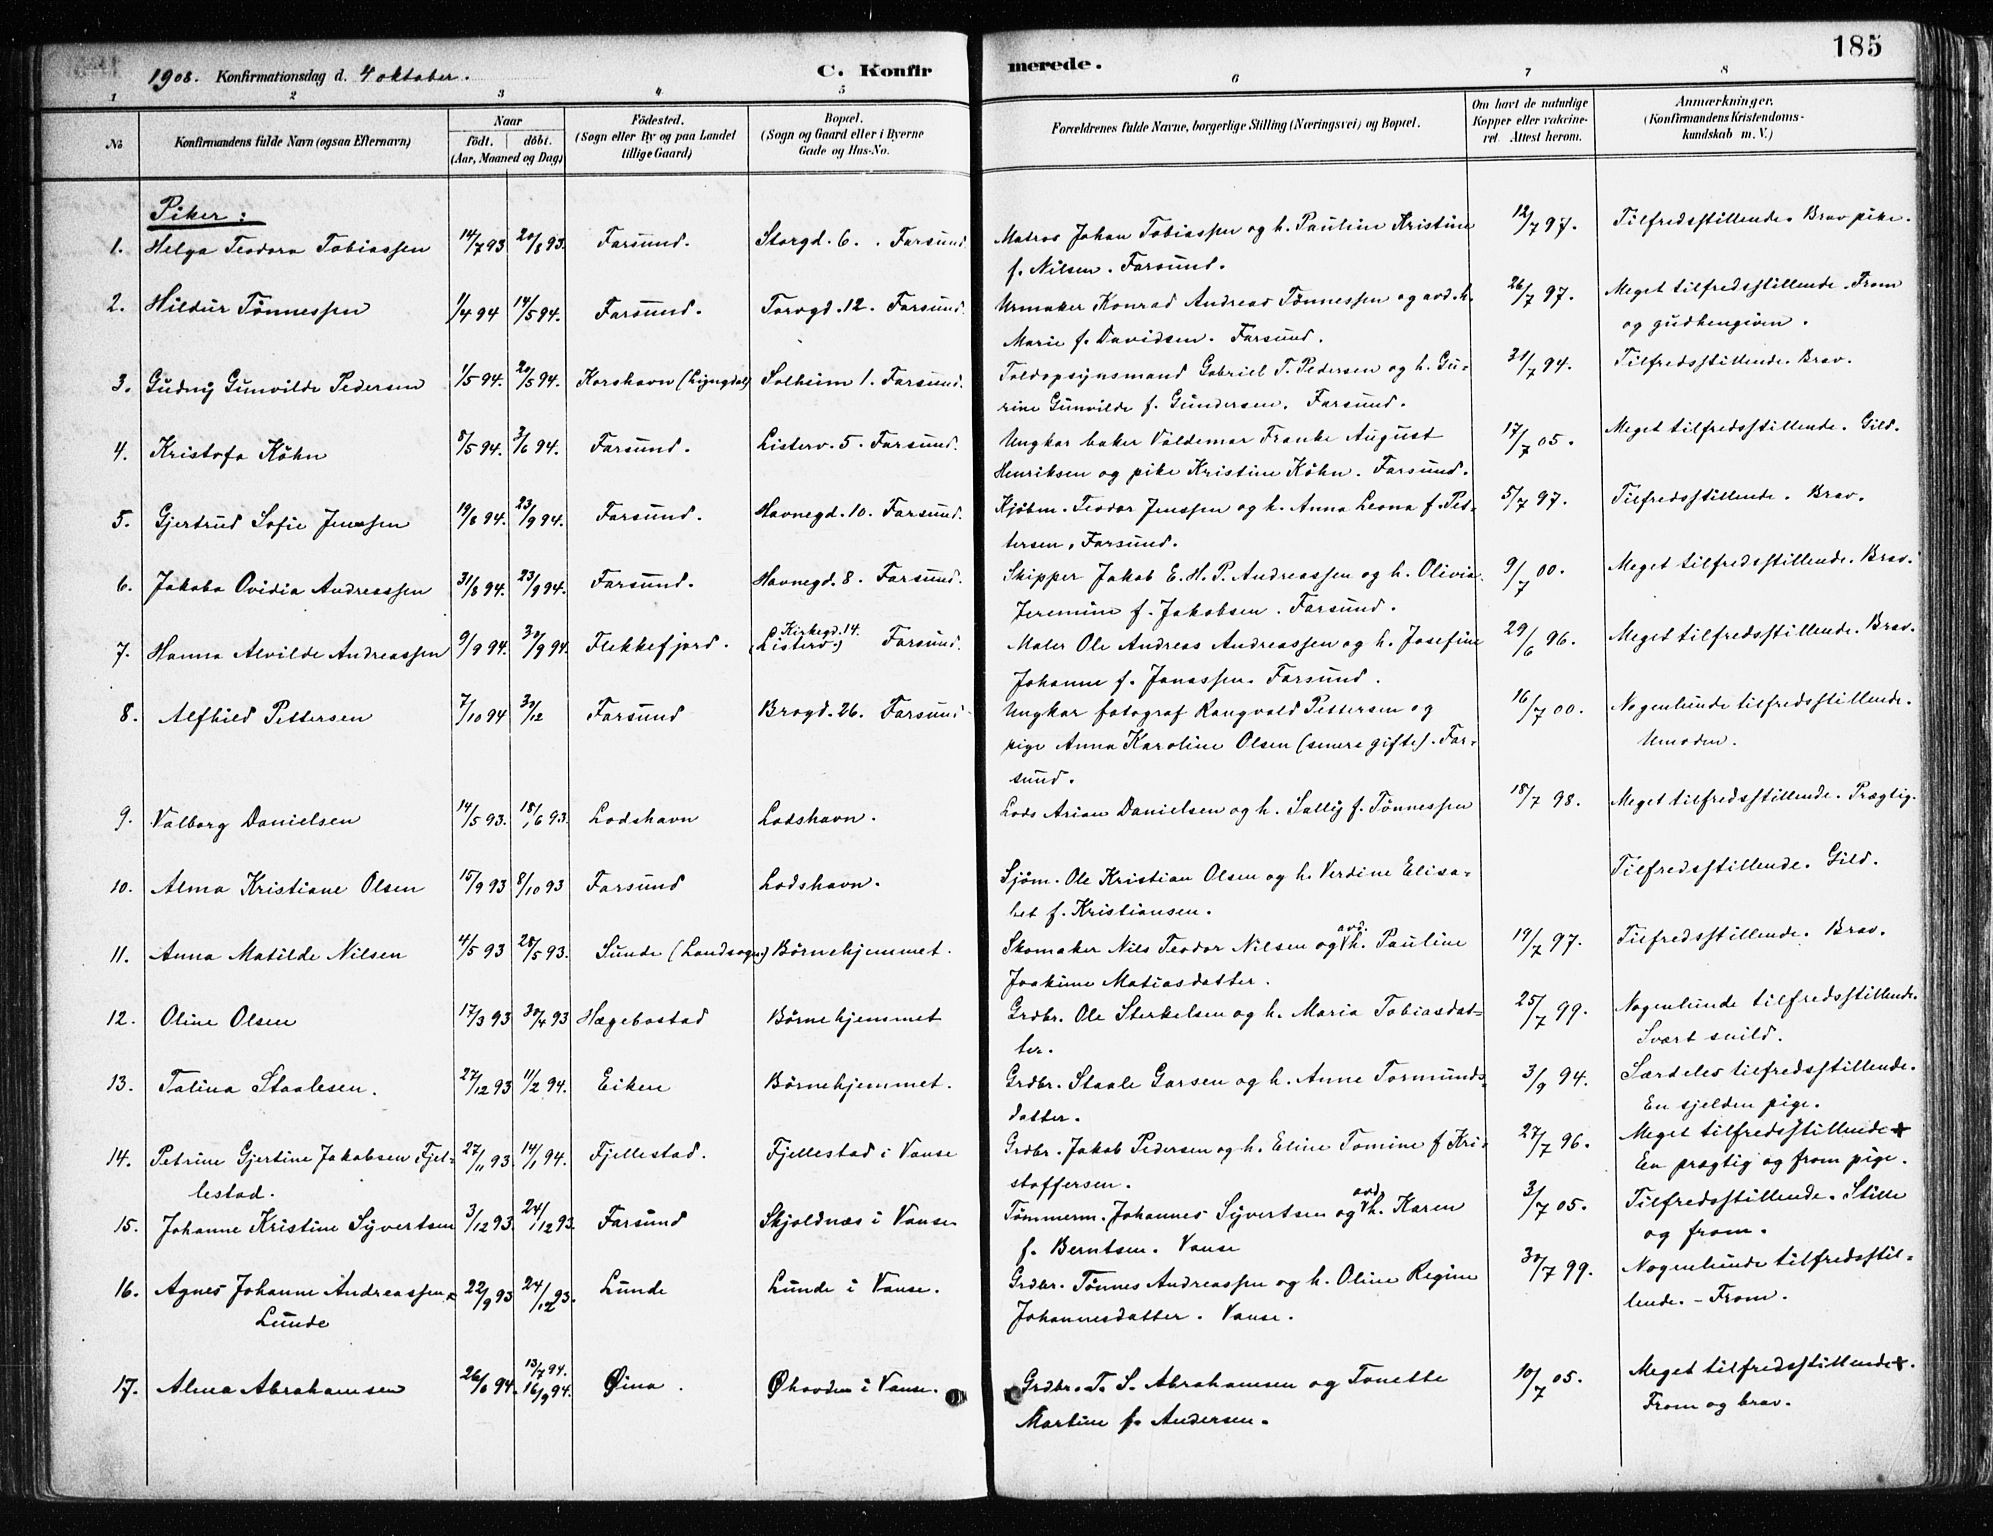 185
1908. Konfirmationsdag d. 4 oktober.
C. Konfirmerede.
1 2 3 4 5 6 7 8
No
Konfirmandens fulde Navn (ogsaa Efternavn)
Naar
födt. döbt.
(Aar, Maaned og Dag)
Födested.
(Sogn eller By og paa Landet
tillige Gaard)
Bopæl.
(Sogn og Gaard eller i Byerne
Gade og Hus-No.
Forældrenes fulde Navne, borgerlige Stilling (Næringsvei) og Bopæl.
Om havt de naturlige
Kopper eller vakcine-
ret. Attest herom.
Anmærkninger.
(Konfirmandens Kristendoms-
kundskab m. V.)
Piker:
1. Helga Teodora Tobiassen 14/7 93 20/8 93. Farsund. Storgd. 6. Farsund. Matros Johan Tobiassen og h. Pauline Kristine 12/7 97. Tilfredsstillende. Brav pike.
f. Nilsen. Farsund.
2. Hildur Tönnessen 1/4 94 14/5 94. Farsund. Torvgd. 12. Farsund. Urmaker Konrad Andreas Tönnessen og avd. h. 26/7 97. Meget tilfredsstillende. From
Marie f. Davidsen. Farsund. og gudhengiven.
3. Gudny Gunvilde Pedersen 1/5 94. 20/5 94. Korshavn (Lyngdal) Solheim 1. Farsund. Toldopsynsmand Gabriel T. Pedersen og h. Gu- 31/7 94. Tilfredsstillende. Brav.
rine Gunvilde f. Gundersen. Farsund.
4. Kristofa Köhn 8/5 94. 3/6 94. Farsund. Listerv. 5. Farsund. Ungkar baker Valdemar Franke August 17/7 05. Meget tilfredsstillende. Gild.
Henriksen og pike Kristine Köhn. Farsund.
5. Gjertrud Sofie Jenssen 19/8 94. 23/9 94. Farsund. Havnegd. 10. Farsund. Kjöbm. Teodor Jenssen og h. Anna Leona f. Ped- 5/7 97. Tilfredsstillende. Brav.
tersen, Farsund.
6. Jakoba Ovidia Andreassen 31/8 94. 23/9 94. Farsund. Havnegd. 8. Farsund. Skipper Jakob E. H. P. Andreassen og h. Olivia 9/7 00. Meget tilfredsstillende. Brav.
Jeremine f. Jakobsen. Farsund.
7. Hanna Alvilde Andreassen 9/9 94. 30/9 94. Flekkefjord. Kirkegd. 14. (Listerv.) Farsund. Maler Ole Andreas Andreassen og h. Josefine 29/6 96. Meget tilfredsstillende. Brav.
Johanne f. Jonassen. Farsund.
8. Alfhild Pettersen 7/10 94 30/12 Farsund Brogd. 26. Farsund. Ungkar fotograf Rangvald Pettersen og 16/7 00. Nogenlunde tilfredsstillende.
pige Anna Karoline Olsen (senere gifte). Far- Umoden.
sund.
9. Valborg Danielsen 14/5 93. 18/6 93. Lodshavn Lodshavn. Lods Arian Danielsen og h. Sally f. Tönnessen 18/7 98. Meget tilfredsstillende. Prægtig.
10. Alma Kristiane Olsen 15/9 93 8/10 93 Farsund Lodshavn. Sjöm. Ole Kristian Olsen og h. Verdine Elisa- Tilfredsstillende. Gild.
bet f. Kristiansen.
11. Anna Matilde Nilsen 4/5 93 28/5 93. Sunde (Landsogn) Börnehjemmet. Skomaker Nils Teodor Nilsen og avd. h. Pauline 19/7 97. Tilfredsstillende. Brav.
Joakime Matiasdatter.
12. Oline Olsen 17/3 93 30/4 93 Hægebostad Börnehjemmet Grdbr. Ole Sterkelsen og h. Maria Tobiasdat- 25/7 99. Nogenlunde tilfredsstillende.
ter. Svært snild.
13. Talina Staalesen. 27/12 93 11/2 94. Eiken Börnehjemmet. Grdbr. Staale Garsen og h. Anne Tormunds- 3/9 94. Særdeles tilfredsstillende.
datter. En sjelden pige.
14. Petrine Gjertine Jakobsen Fjel- 27/11 93. 14/1 94. Fjellestad. Fjellestad i Vanse Grdbr. Jakob Pedersen og h. Eline Tomine f. Kri- 27/7 96. Meget tilfredsstillende
lestad. stoffersen. En prægtig og from pige.
15. Johanne Kristine Syvertsen 3/12 93. 24/12 93. Farsund Skjoldnæs i Vanse Tömmerm. Johannes Syvertsen og avd. h. Karen 3/7 05. Tilfredsstillende. Stille
f. Berntsen. Vanse og from.
16. Agnes Johanne Andreassen 22/9 93 24/12 93. Lunde Lunde i Vanse. Grdbr. Tönnes Andreassen og h. Oline Regine 30/7 99. Nogenlunde tilfredsstil-
Lunde Johannesdatter. Vanse. lende. - From.
17. Alma Abrahamsen 26/6 94. 13/7 94. 16/9 94. Öina. Öhavden i Vanse. Grdbr. T. S. Abrahamsen og Tonette 10/7 05. Meget tilfredsstillende.
Martine f. Andersen. From og brav.